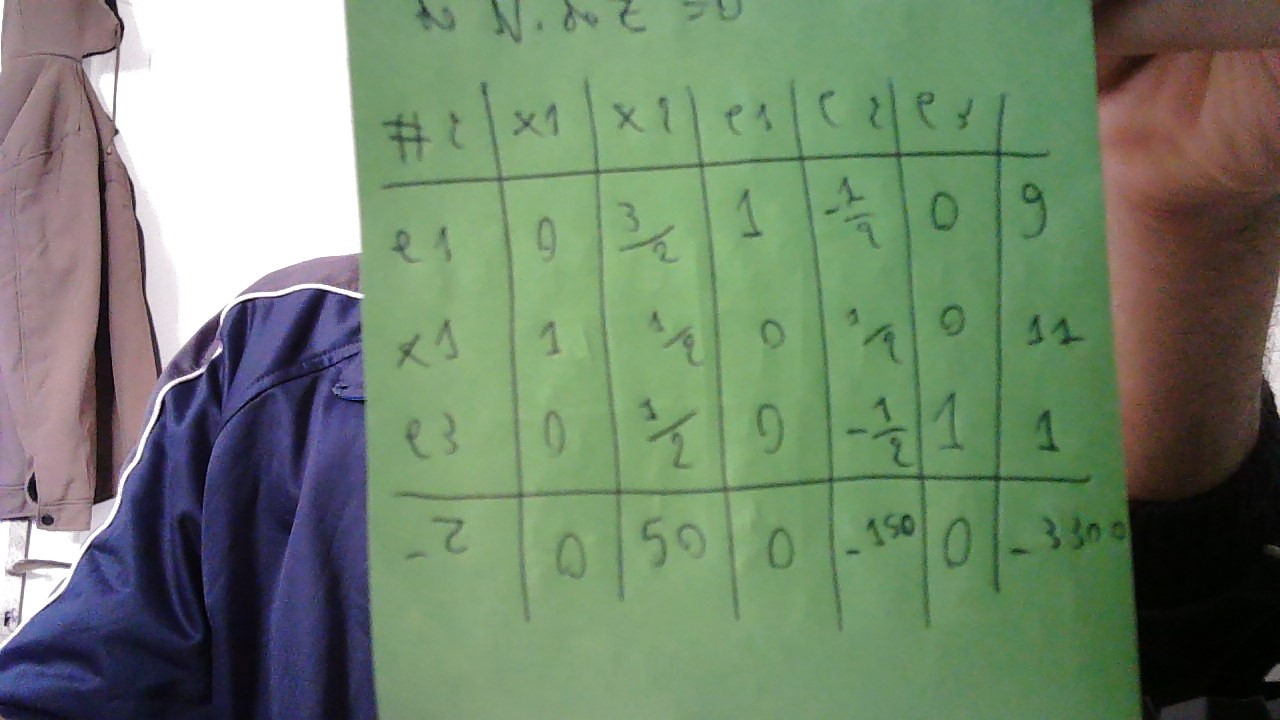 N. de Z = 0
#2 x1 x2 e1 e2 e3
e1 0 3/2 1 -1/2 0 9
x1 1 1/2 0 1/2 0 11
e3 0 1/2 0 -1/2 1 1
-Z 0 50 0 -150 0 -3300